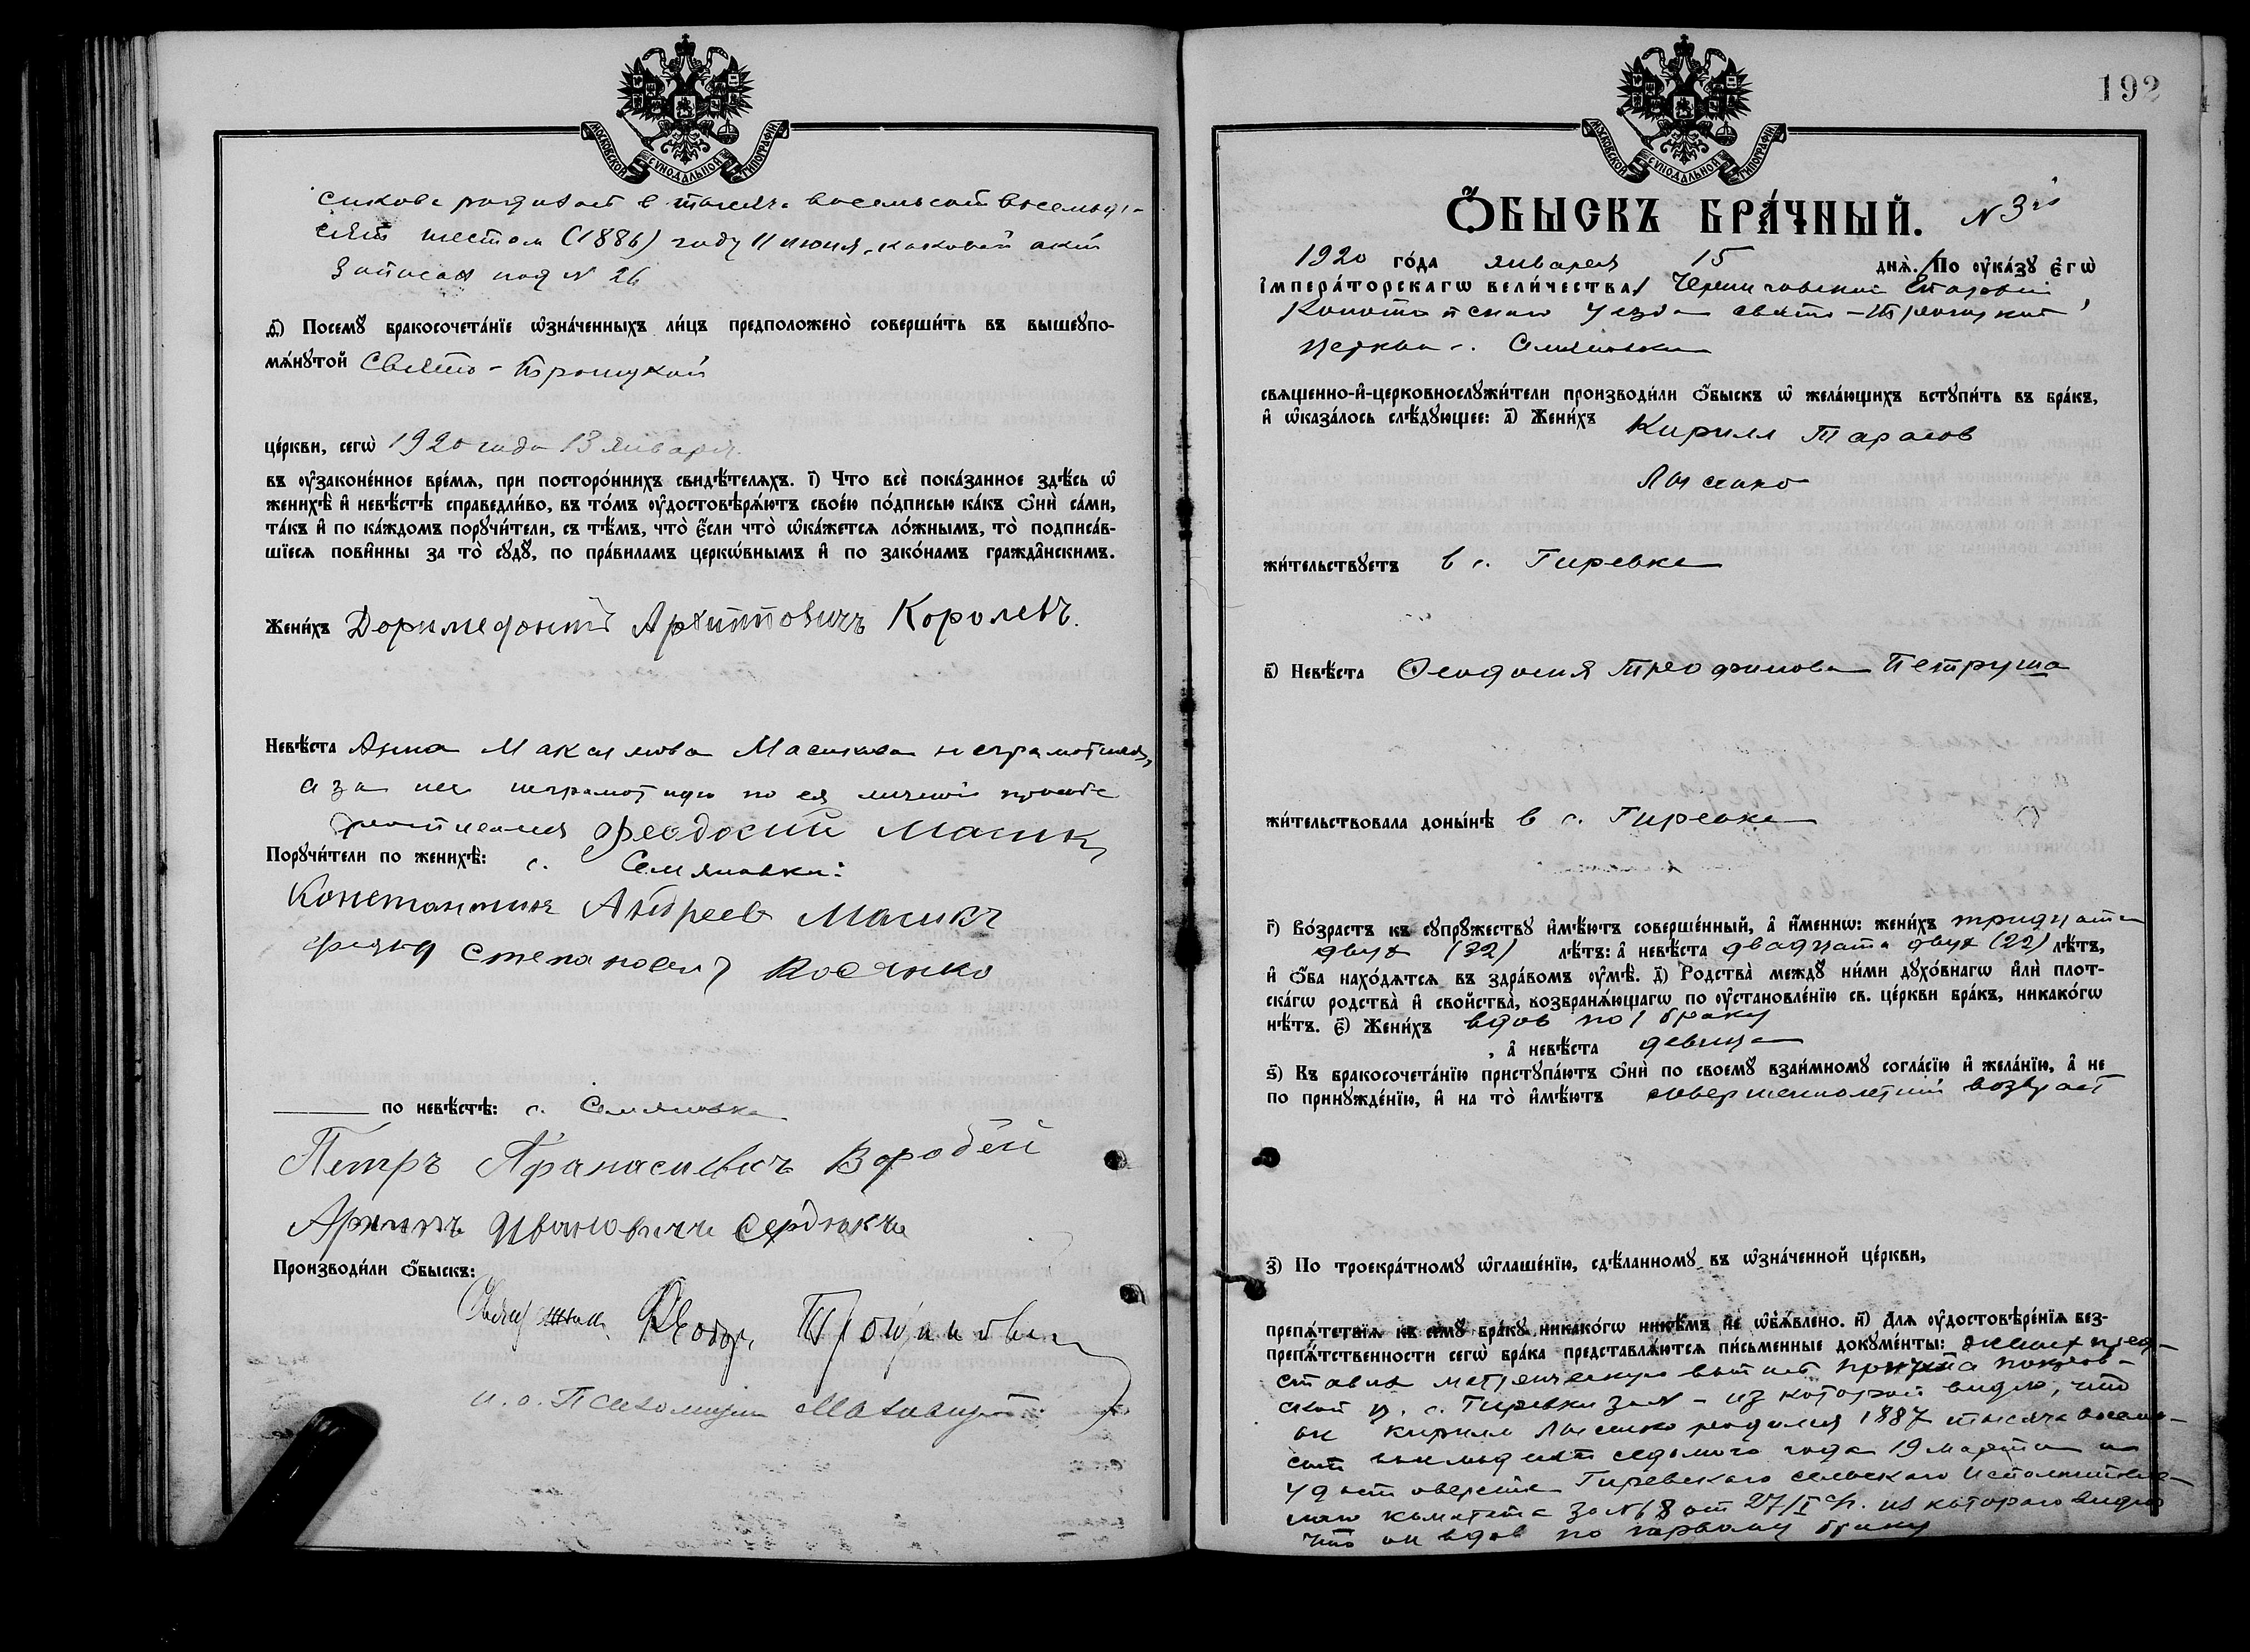 МОСКОВСКОЙ СѴНОДАЛЬНОЙ ТИПОГРАФІИ
сикова родилась в тысяча восемьсот восемьде-
сят шестом (1886) году 11 июня, каковой акт
записан под N 26
Посемꙋ̀ бракосочета́нїе ѡ҆зна́ченныхъ ли́цъ предположено̀ соверши́ть въ вышеꙋпо-
мѧ́нꙋтой Свято-Троицкой
це́ркви, сегѡ̀ 1920 года 13 января.
въ оу҆зако́ненное вре́мѧ, при посторо́ннихъ свидѣ́телѧхъ. і҃) Что всѐ пока́занное здѣ́сь ѡ҆
женихѣ̀ и҆ невѣ́стѣ справедли́во, въ то́мъ оу҆достовѣрѧ́ютъ свое́ю по́дписью ка́къ ѻ҆нѝ са́ми,
та́къ и҆ по ка́ждомъ порꙋчи́тели, съ тѣ́мъ, что̀ є҆́сли что̀ ѡ҆ка́жетсѧ ло́жнымъ, то̀ подписа́в-
шїесѧ пови́нны за то̀ сꙋдꙋ̀, по пра́виламъ церкѡ́внымъ и҆ по зако́намъ гражда̑нскимъ.
Жени́хъ Доримедонтъ Архиповичъ Королевъ.
Невѣ́ста Анна Максимова Масикова неграмотная,
а за нее неграмотную по ея личной просьбе
расписался Феодосий Масик
Порꙋчи́тели по женихѣ̀: с. Семяновки:
Константинъ Андреев Масикъ
Степанович Косянко
по невѣ́стѣ: с. Семяновка
Петръ Афанасиевичъ Воробей
Архипъ Ивановичъ Сердюкъ
Производи́ли ѻ҆́быскъ:
Священник Ѳеодор
и. о. Псаломщика
192
МОСКОВСКОЙ СѴНОДАЛЬНОЙ ТИПОГРАФІИ
Ѻ҆́БЫСКЪ БРА́ЧНЫЙ. N 3й
1920 го́да января 15 днѧ̀. По оу҆ка́зꙋ є҆гѡ̀
і҆мпера́торскагѡ вели́чества, Черниговской епархии
Конотопского уезда Свято-Троицкой
церкви с. Семяновки
свѧщенно-и҆-церковнослꙋжи́тели производи́ли ѻ҆́быскъ ѡ҆ жела́ющихъ встꙋпи́ть въ бра́къ,
и҆ ѡ҆каза́лось слѣ́дꙋющее: а҃) Жени́хъ Кирилл Тарасов
Лысенко
жи́тельствꙋетъ в с. Гиревке
в҃) Невѣ́ста Феодосия Трофимова Петруша
жи́тельствовала доны́нѣ в с. Гиревке
г҃) Во́зрастъ къ сꙋпрꙋ́жествꙋ и҆мѣ́ютъ соверше́нный, а҆ и҆́меннѡ: жени́хъ тридцати
двух (32) лѣ́тъ: а҆ невѣ́ста двадцати двух (22) лѣ́тъ,
и҆ ѻ҆́ба нахо́дѧтсѧ въ здра́вомъ оу҆мѣ̀. д҃) Родства̀ междꙋ̀ ни́ми дꙋхо́внагѡ и҆лѝ плот-
ска́гѡ родства̀ и҆ свойства̀, возбранѧ́ющагѡ по оу҆становле́нїю св. це́ркви бра́къ, никако́гѡ
нѣ́тъ. є҃) Жени́хъ вдов по 1 браку
, а҆ невѣ́ста девица
ѕ҃) Къ бракосочета́нїю пристꙋпа́ютъ ѻ҆нѝ по своемꙋ̀ взаи́мномꙋ согла́сїю и҆ жела́нїю, а҆ не
по принꙋжде́нїю, и҆ на то̀ и҆мѣ́ютъ совершеннолетний возраст
з҃) По троекра́тномꙋ ѡ҆глаше́нїю, сдѣ́ланномꙋ въ ѡ҆зна́ченной це́ркви,
препѧ́тствїѧ къ семꙋ̀ бра́кꙋ никако́гѡ никѣ́мъ не ѡ҆б̾ѧ́влено. и҃) Для оу҆достовѣре́нїѧ без-
препѧ́тственности сегѡ̀ бра́ка представлѧ́ютсѧ пи́сьменные докꙋме́нты: жених пред-
ставил метрическую выпись причта Покров-
ской ц. с. Гиревки за N - из которой видно, что
он Кирилл Лысенко родился 1887 тысяча восемь-
сот восемьдесят седьмого года 19 марта и
удостоверение Гиревского сельского Исполнитель-
ного комитета за N 68 от 27/I с/г. из которого видно
что он вдов по первому браку